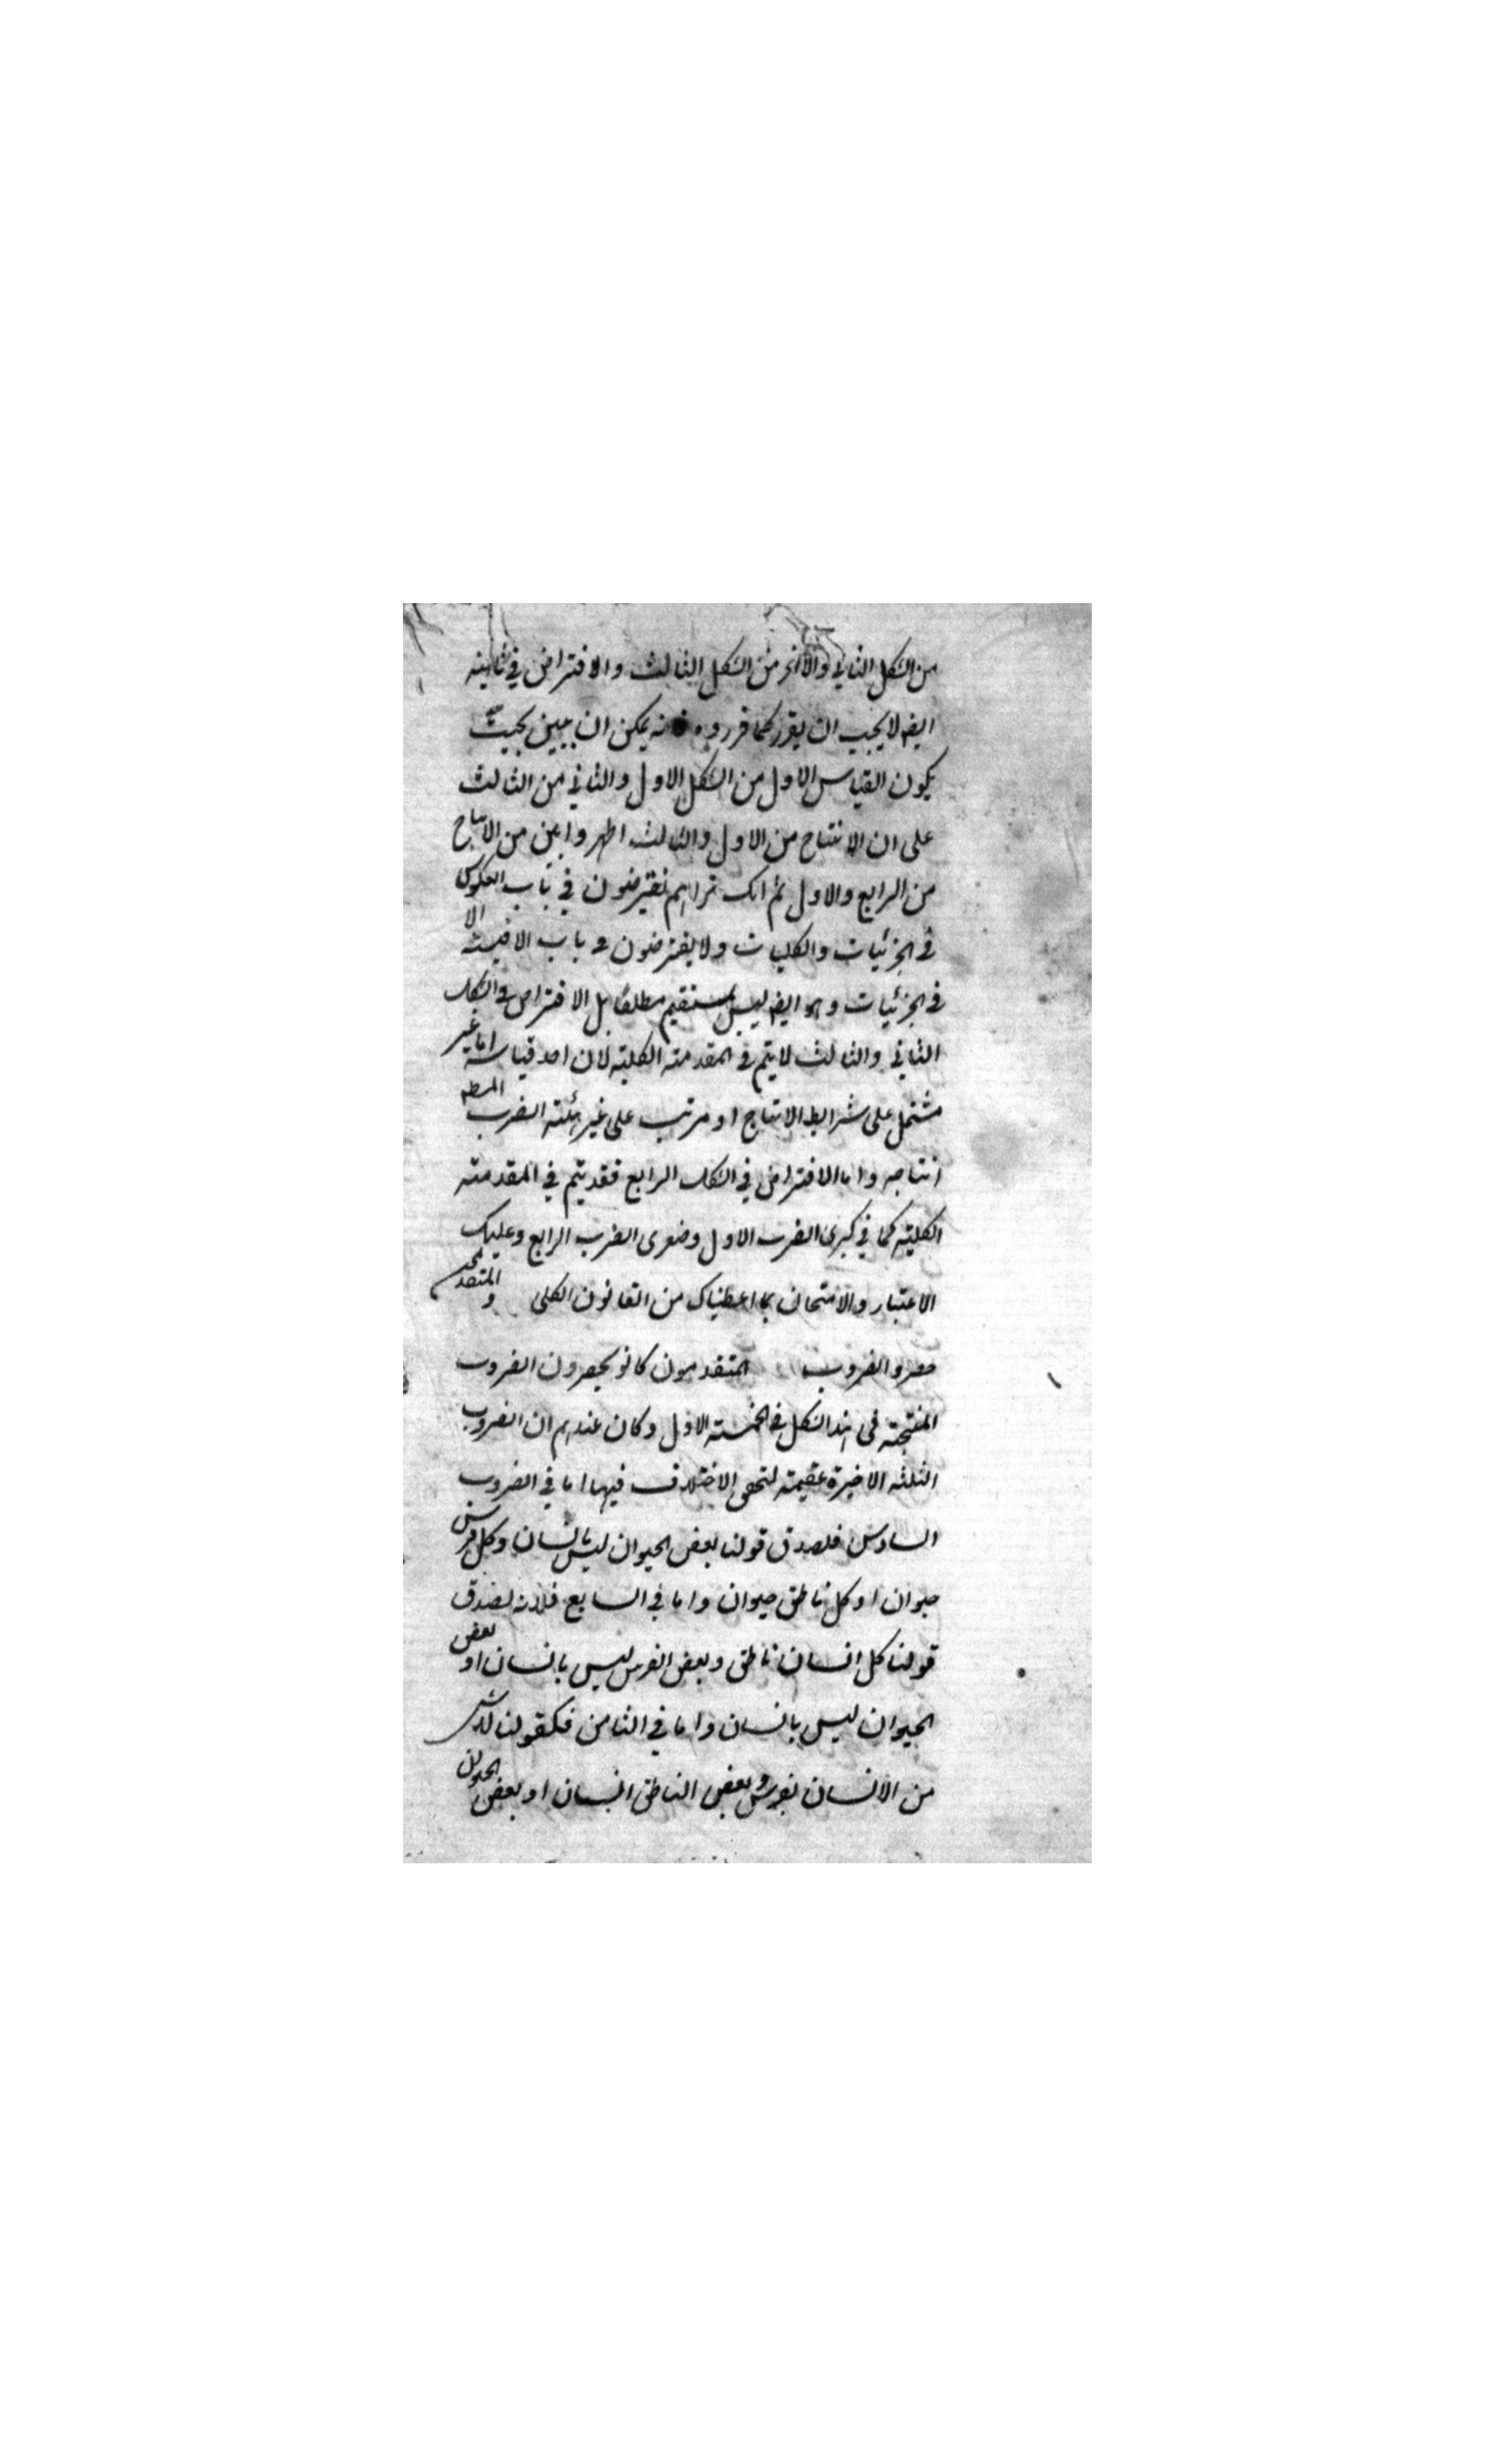 من الشكل الثاني والاخر من الشكل الثالث والافتراض في ثانيته
ايضا لا يجب ان يقرر كما قرروه فانه يمكن ان يبين بحيث
يكون القياس الاول من الشكل الاول والثاني من الثالث
على ان الانتاج من الاول والثالث اظهر وابين من الانتاج
من الرابع والاول ثم انك تراهم يفترضون في باب العكوس
في الجزئيات والكليات ولا يفترضون في باب الاقيسة الا
في الجزئيات وهو ايضا ليس بمستقيم مطلقا بل الافتراض في الشكل
الثاني والثالث لا يتم في المقدمة الكلية لان احد قياسيه اما غير
مشتمل على شرايط الانتاج او مرتب على غير هيئة الضرب المط
انتاجه واما الافتراض في الشكل الرابع فقد يتم في المقدمة
الكلية كما في كبرى الضرب الاول وصغرى الضرب الرابع وعليك
الاعتبار والامتحان بما اعطيناك من القانون الكلي و المتقدمون
حصروا الضروب المتقدمون كانو يحصرون الضروب
المنتجة في هذا الشكل في الخمسة الاول وكان عندهم ان الضروب
الثلثه الاخيرة عقيمة لتحقق الاختلاف فيها اما في الضروب
السادس فلصدق قولنا بعض الحيوان ليس بانسان وكل فرس
حيوان او كل ناطق حيوان واما في السابع فلانه لصدق
قولنا كل انسان ناطق وبعض الفرس ليس بانسان او بعض
الحيوان ليس بانسان واما في الثامن فكقولنا لا شي
من الانسان بفرس وبعض الناطق انسان او بعض الحيوان